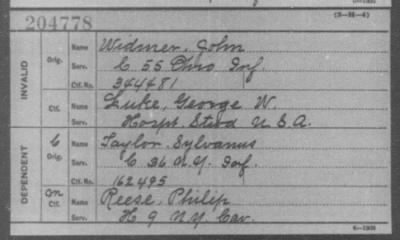 (3-88-4)
204778
INVALID
Orig. Name Widmer, John
Serv. C 55 Ohio Inf.
Ctf. No. 344481
Ctf. Name Luke, George W.
Serv. Hospt. Stwd U.S.A.
DEPENDENT
C
Orig. Name Taylor, Sylvanus
Serv. C 36 N.Y. Inf.
Ctf. No. 162495
Ctf. Name Reese, Philip
Serv. H 9 N.Y. Cav.